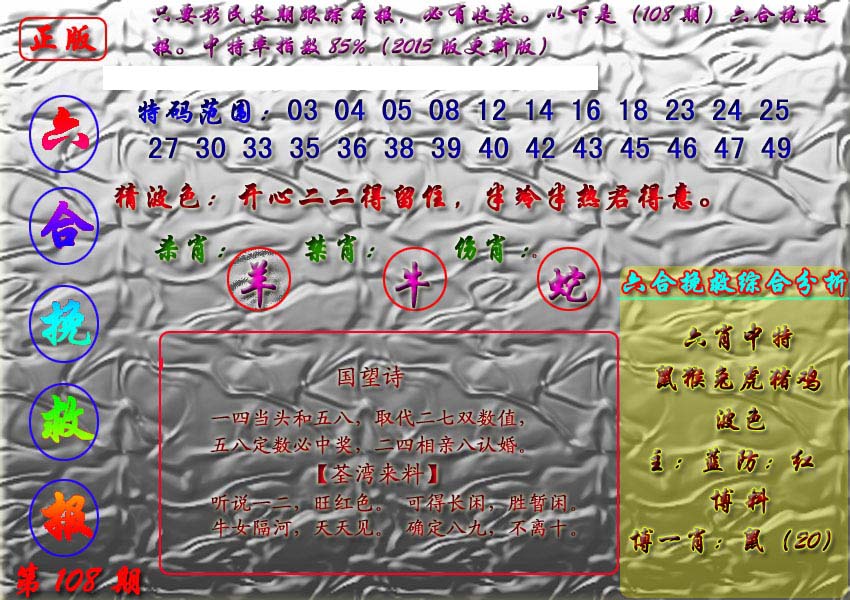 正版
只要彩民长期跟踪本报，必有收获。以下是（108期）六合挽救
报。中特率指数85%（2015版更新版）
六合挽救报
第108期
特码范围：03 04 05 08 12 14 16 18 23 24 25
27 30 33 35 36 38 39 40 42 43 45 46 47 49
猜波色：开心二二得留住，半冷半热君得意。
杀肖：羊 禁肖：牛 伤肖：蛇
国望诗
一四当头和五八，取代二七双数值，
五八定数必中奖，二四相亲八认婚。
【荃湾来料】
听说一二，旺红色。 可得长闲，胜暂闲。
牛女隔河，天天见。 确定八九，不离十。
六合挽救综合分析
六肖中特
鼠猴兔虎猪鸡
波色
主：蓝防：红
博料
博一肖：鼠（20）